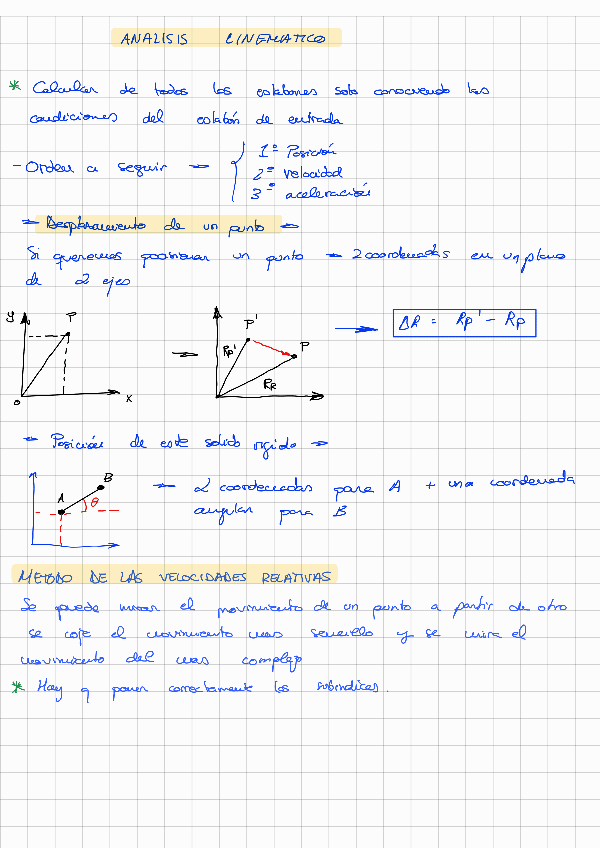 ANALISIS CINEMATICO
* Calcular de todos los eslabones solo conociendo las
condiciones del eslabón de entrada
- Orden a seguir → { 1º Posición
2º velocidad
3º aceleración
→ Desplazamiento de un punto →
Si queremos posicionar un punto → 2 coordenadas en un plano
de 2 ejes
y P
o x
→ P' P
Rp' RR
→ ΔR = Rp' - Rp
→ Posición de este solido rigido →
A B θ
→ 2 coordenadas para A + una coordenada
angular para B
METODO DE LAS VELOCIDADES RELATIVAS
Se puede mirar el movimiento de un punto a partir de otro
se coje el movimiento mas sencillo y se mira el
movimiento del mas complejo
* Hay q poner correctamente los subindices.